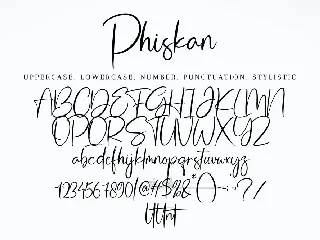 Phiskan
UPPERCASE, LOWERCASE, NUMBER, PUNCTUATION, STYLISTIC
ABCDEFGHIJKLMN
OPQRSTUVWXYZ
abcdefghijklmnopqrstuvwxyz
1234567890!@#$%&*()-+?/